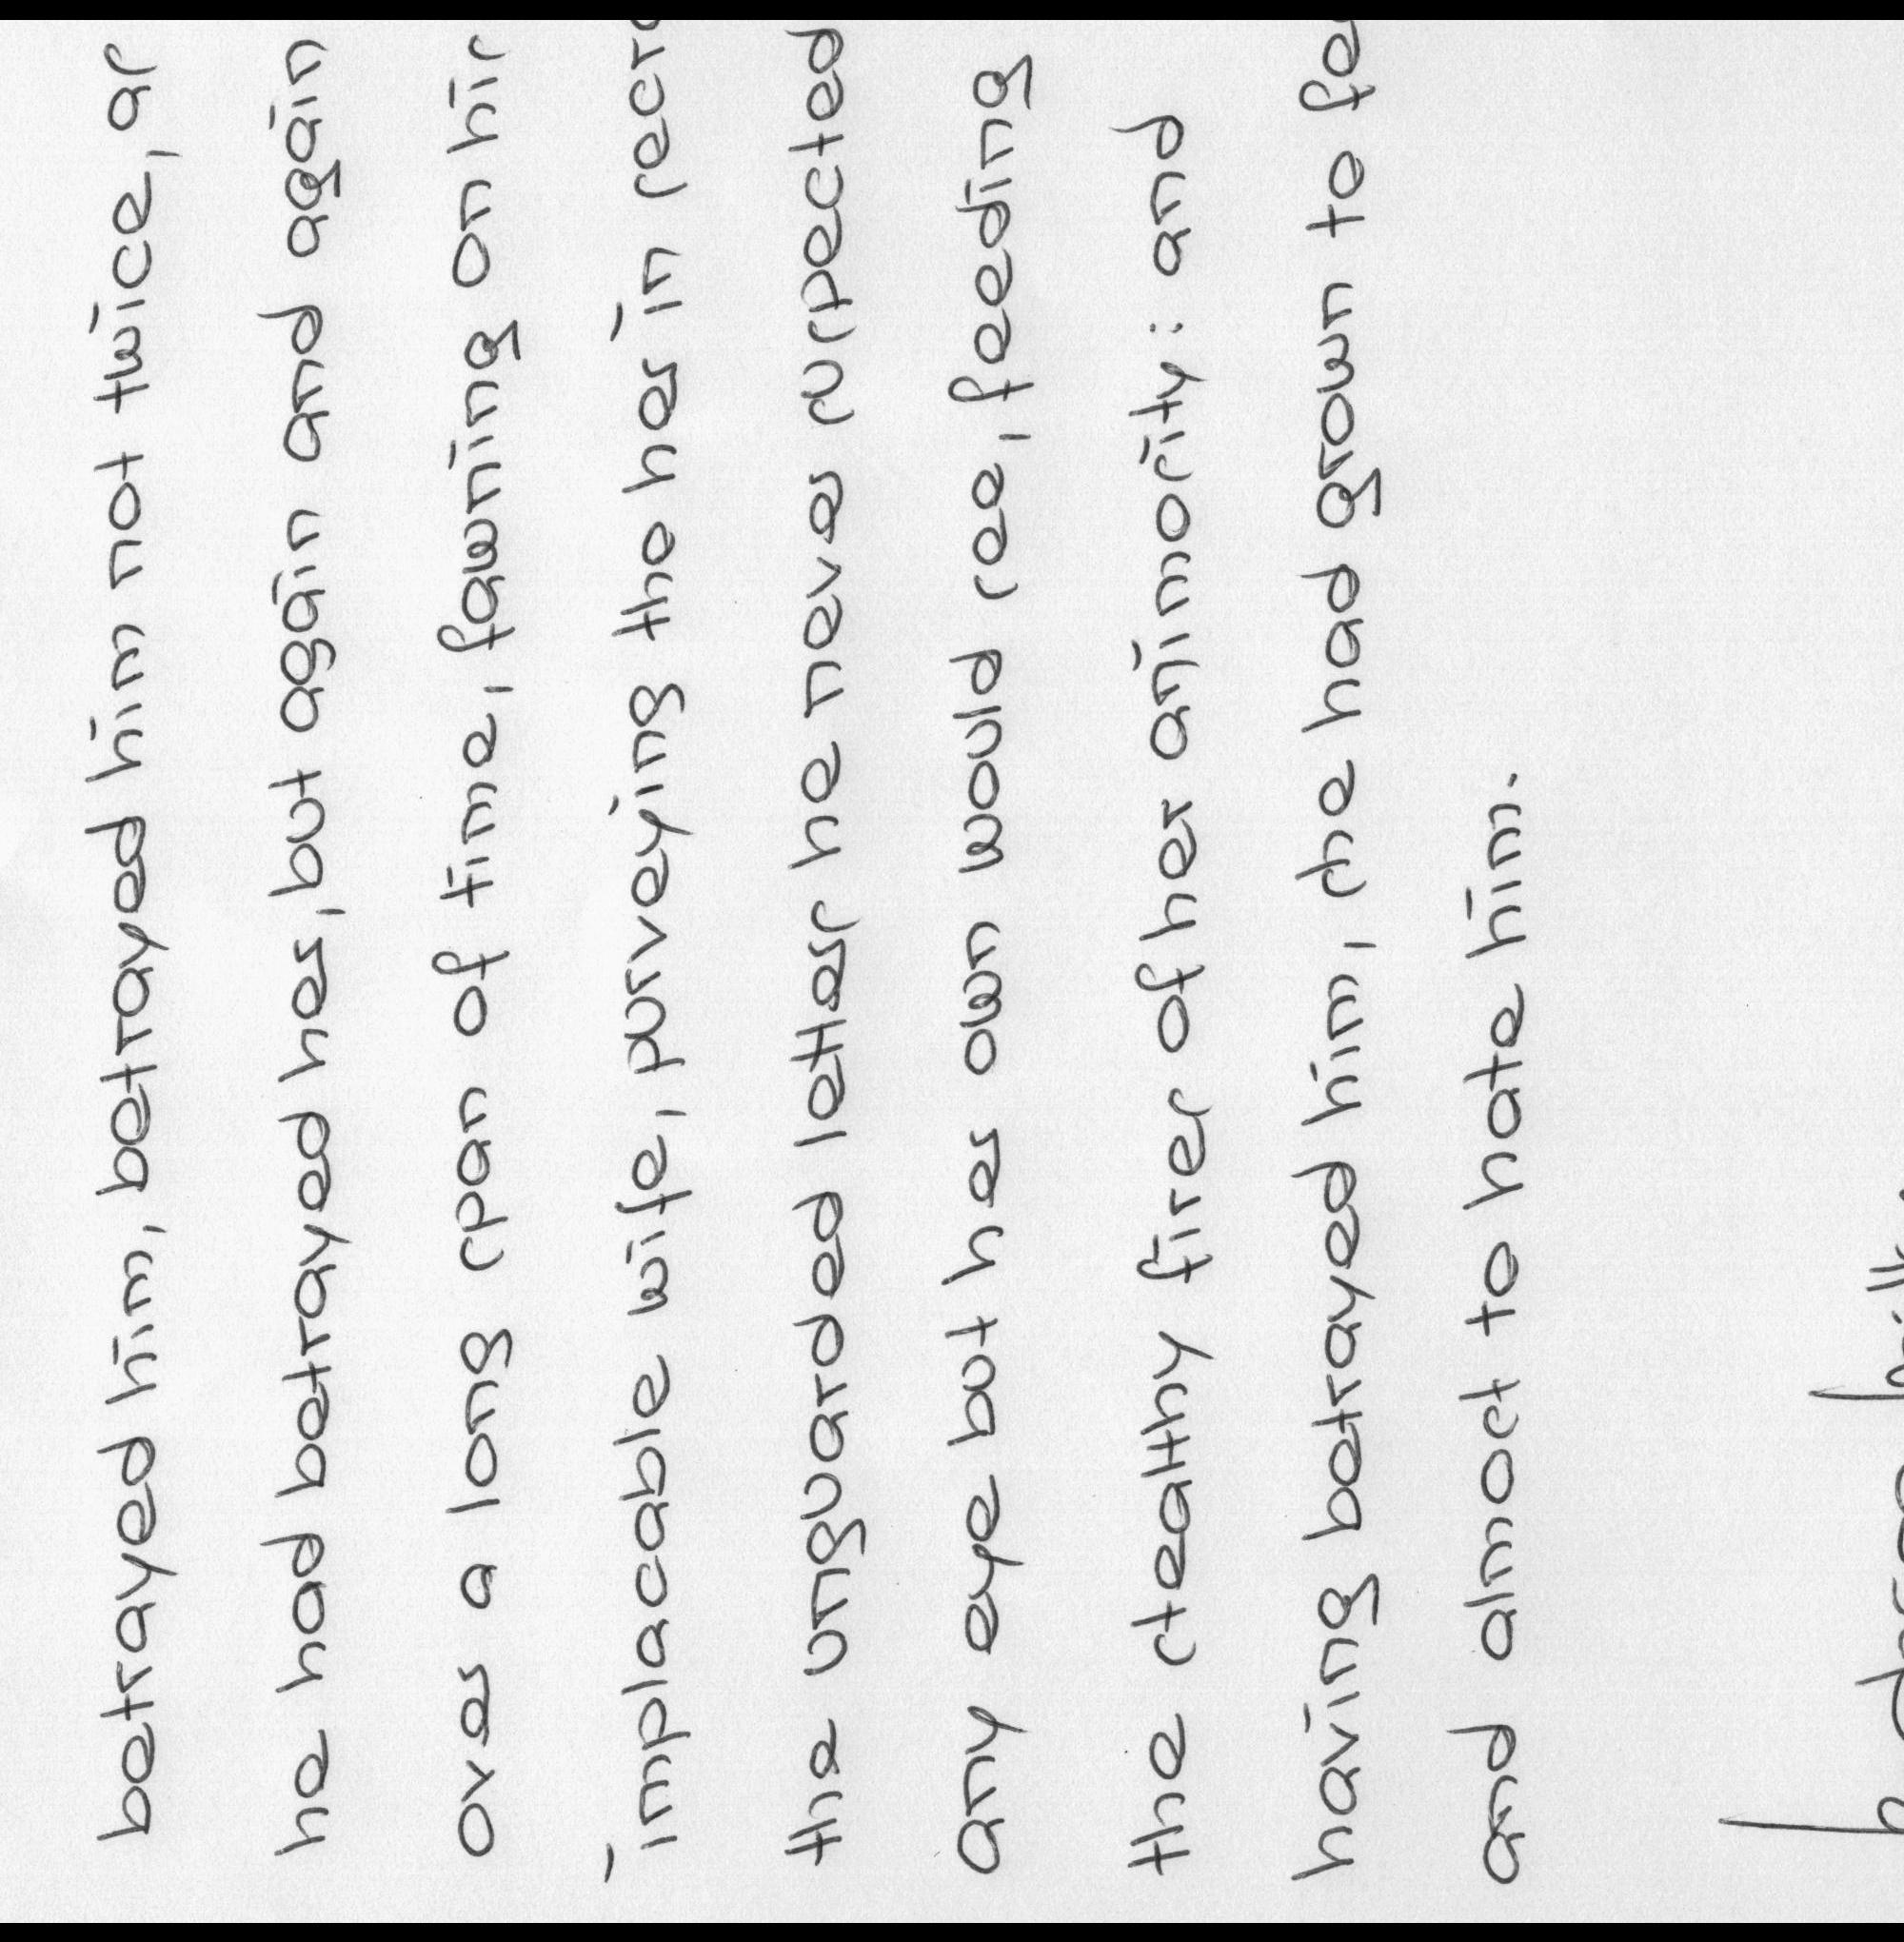 betrayed him, betrayed him not twice, as
he had betrayed her, but again and again
over a long span of time, fawning on his
implacable wife, purveying the her in secre
the unguarded letters he never suspected
any eye but her own would see, feeding
the stealthy fires of her animosity: and
having betrayed him, she had grown to fe
and almost to hate him.